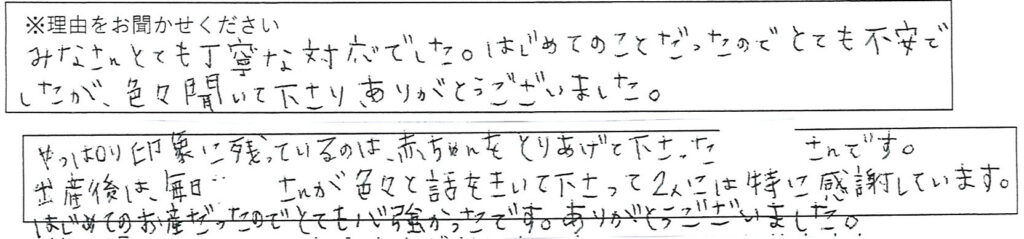 ※理由をお聞かせください
みなさんとても丁寧な対応でした。はじめてのことだったのでとても不安で
したが、色々聞いて下さり、ありがとうございました。
やっぱり印象に残っているのは、赤ちゃんをとりあげて下さった さんです。
出産後は、毎日 さんが色々と話をきいて下さって2人には特に感謝しています。
はじめてのお産だったのでとても心強かったです。ありがとうございました。